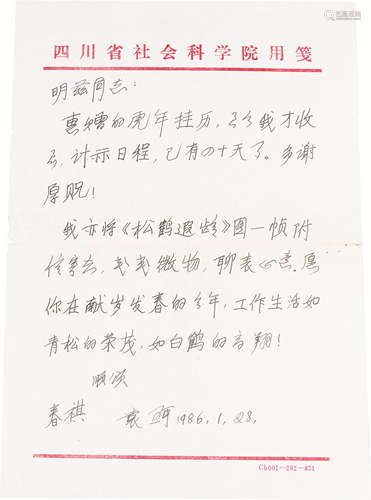 四川省社会科学院用笺
明兹同志：
惠赠的虎年挂历，至今我才收
到，计示日程，已有四十天了。多谢
厚贶！
我亦将《松鹤遐龄》图一帧附
信寄去，戋戋微物，聊表心意。愿
你在献岁发春的今年，工作生活如
青松的荣茂，如白鹤的高翔！
顺颂
春祺
袁珂 1986，1，28，
Ch001-202-851